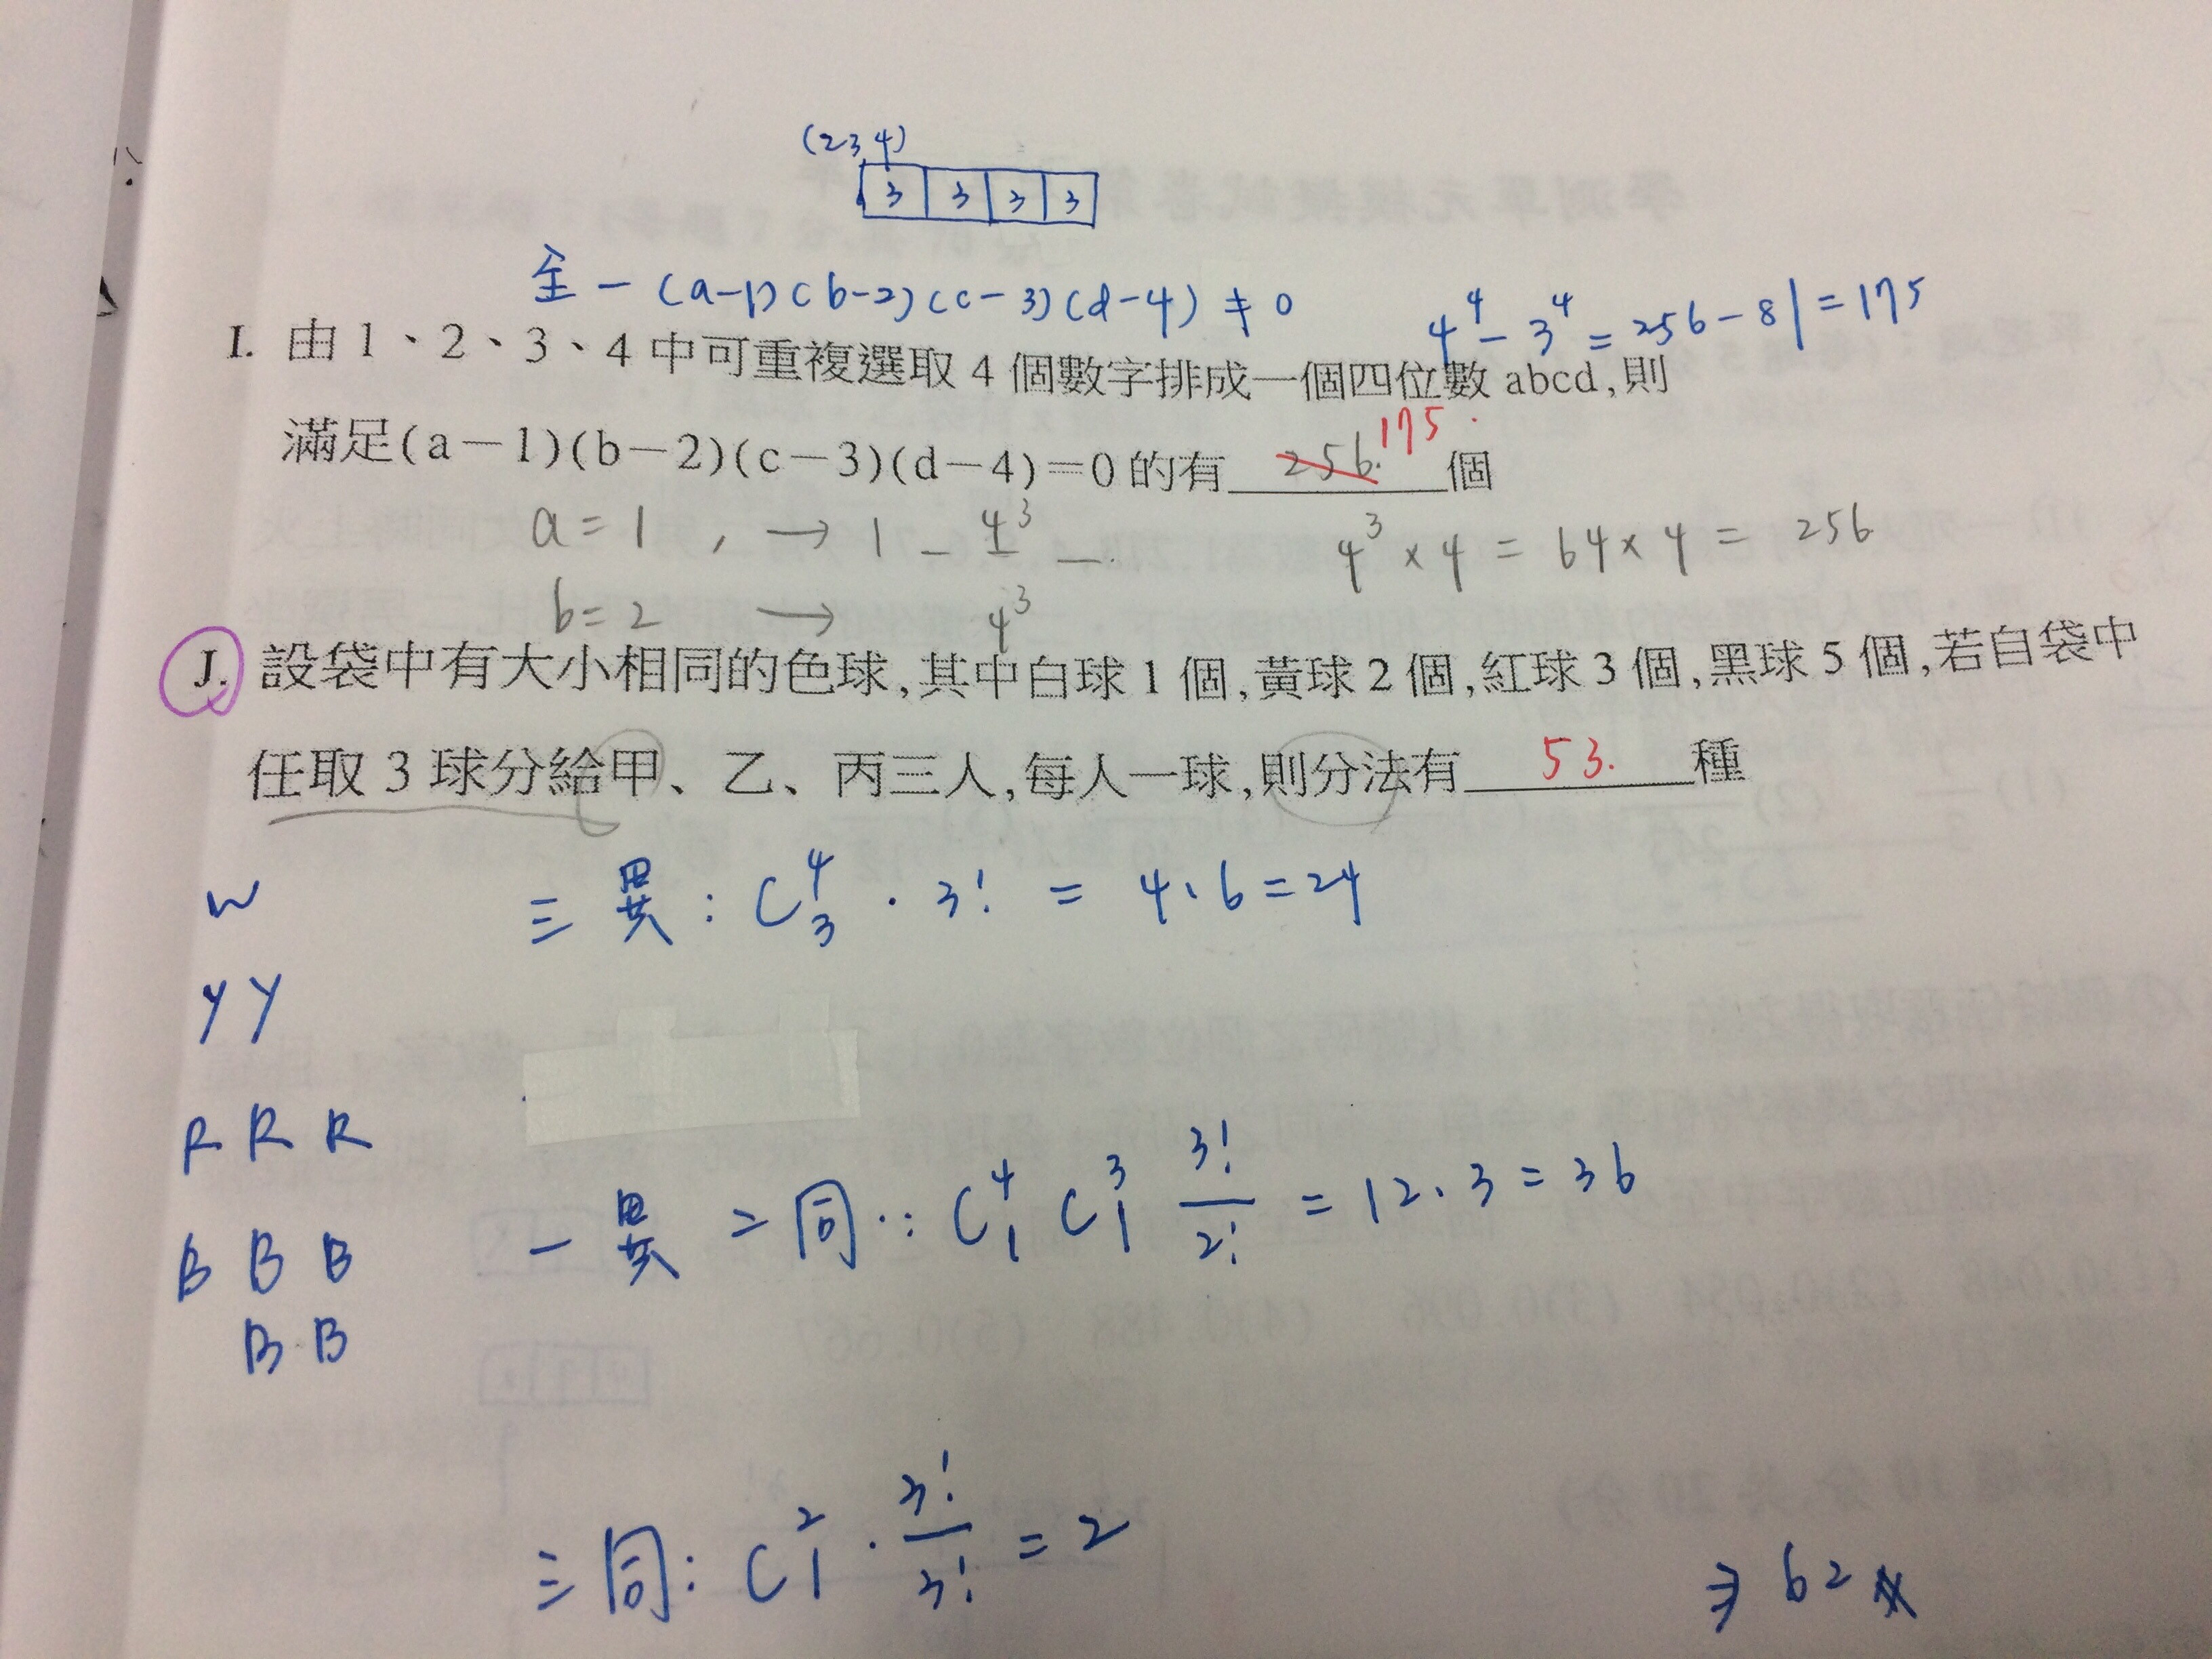 (234)
3 3 3 3
全 - (a-1)(b-2)(c-3)(d-4) ≠ 0
4⁴ - 3⁴ = 256 - 81 = 175
I. 由1、2、3、4中可重複選取4個數字排成一個四位數abcd,則
175.
滿足(a-1)(b-2)(c-3)(d-4)=0的有 256. 個
a = 1 , → 1 _ 4³ _
4³ × 4 = 64 × 4 = 256
b = 2 → 4³
J. 設袋中有大小相同的色球,其中白球1個,黃球2個,紅球3個,黑球5個,若自袋中
任取3球分給甲、乙、丙三人,每人一球,則分法有 53. 種
W
三異: C⁴₃ · 3! = 4·6 = 24
Y Y
R R R
一異二同: C⁴₁ C³₁ 3!/2! = 12·3 = 36
B B B
B B
三同: C²₁ · 3!/3! = 2
⇒ 62